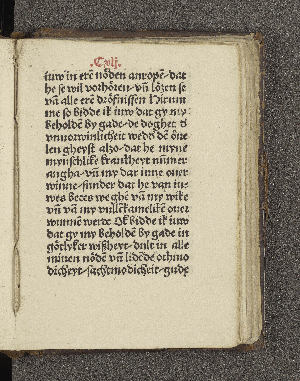 .Cvlj.
iuw in erē nöden anropē-dat
he se wil vorhören-vñ lözen se
vā alle erē dröfnissen Hirum
me so bidde ik iuw dat gy my
beholdē by gade-de doghet
vnuorwinlicheit wedd dē
len gheyst alzo-dat he myne
mynschlikē krancheyt nūmer
angha-vñ my dar inne ouer
winne-sunder dat he van iu-
wes wegē vā my wike
vñ vā my ouer
wunnē werde Ok bidde ik iuw
dat gy my beholdē by gade in
götlyker wißheyt-dult in alle
minen nödē vñ lidēde othmo
dicheyt-sachtmodicheit-gude